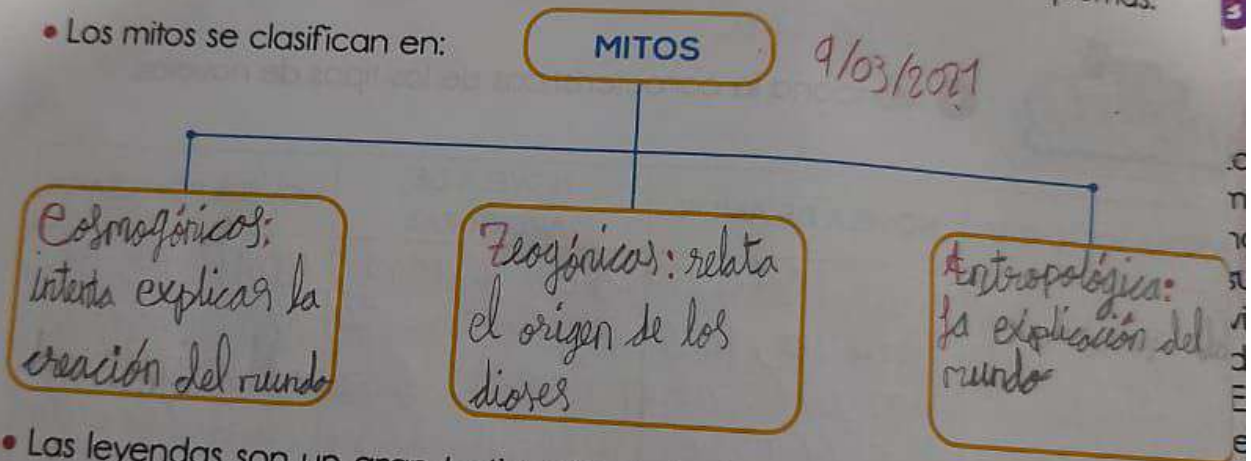 • Los mitos se clasifican en:
MITOS
9/03/2021
Cosmogónicos:
intenta explicar la
creación del mundo
Teogónicas: relata
el origen de los
dioses
Antropológica:
la explicación del
mundo
• Las leyendas son un